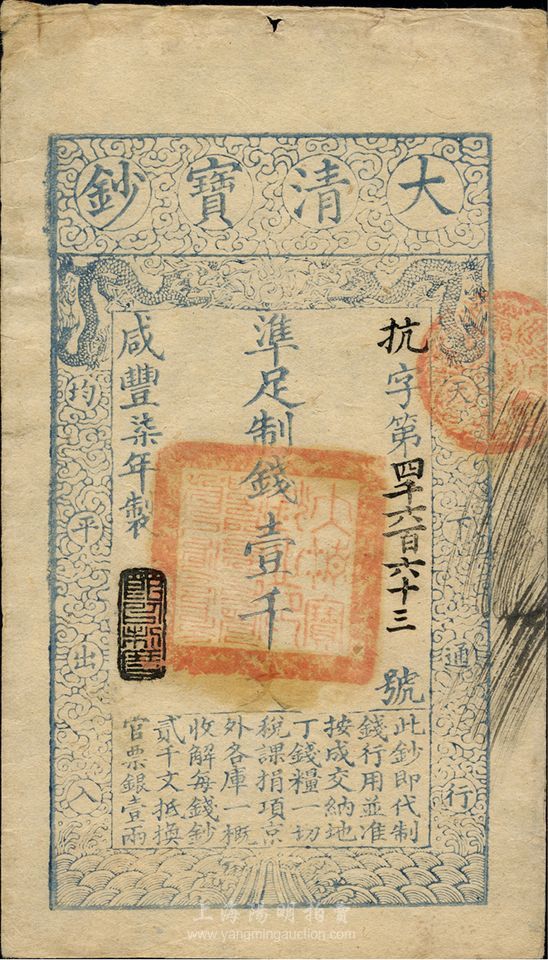 大清寶鈔
天下通行
均平出入
抗字第四千六百六十三號
準足制錢壹千
咸豐柒年製
此鈔即代制
錢行用並准
按成交納地
丁錢糧一切
稅課捐項京
外各庫一概
收解每錢鈔
貳千文抵換
官票銀壹兩
上海陽明拍賣
www.yangmingauction.com